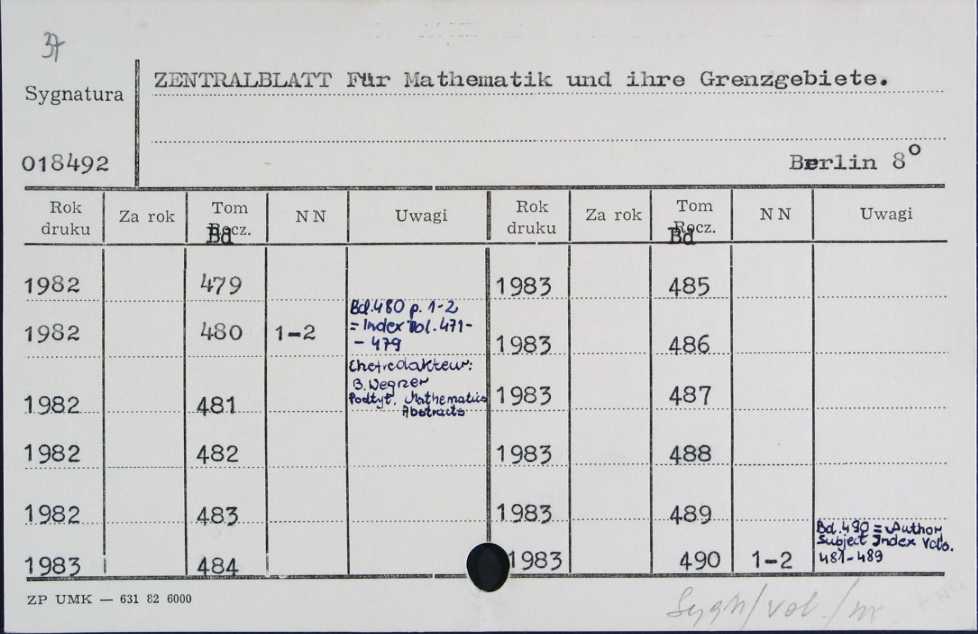 37
Sygnatura
ZENTRALBLATT Für Mathematik und ihre Grenzgebiete.
018492
Berlin 8°
Rok druku Za rok Tom Rocz. Bd NN Uwagi Rok druku Za rok Tom Rocz. Bd NN Uwagi
1982 479 1983 485
1982 480 1-2 Bd.480 p. 1-2
= Index Vol. 471-
- 479
1983 486
Chefredakteur:
B. Wegner
Podtyt. Mathematics
Abstracts
1982 481 1983 487
1982 482 1983 488
1982 483 1983 489
1983 484 1983 490 1-2 Bd.490 = Author
Subject Index Vols.
481-489
ZP UMK — 631 82 6000
Sygn/vol./nr